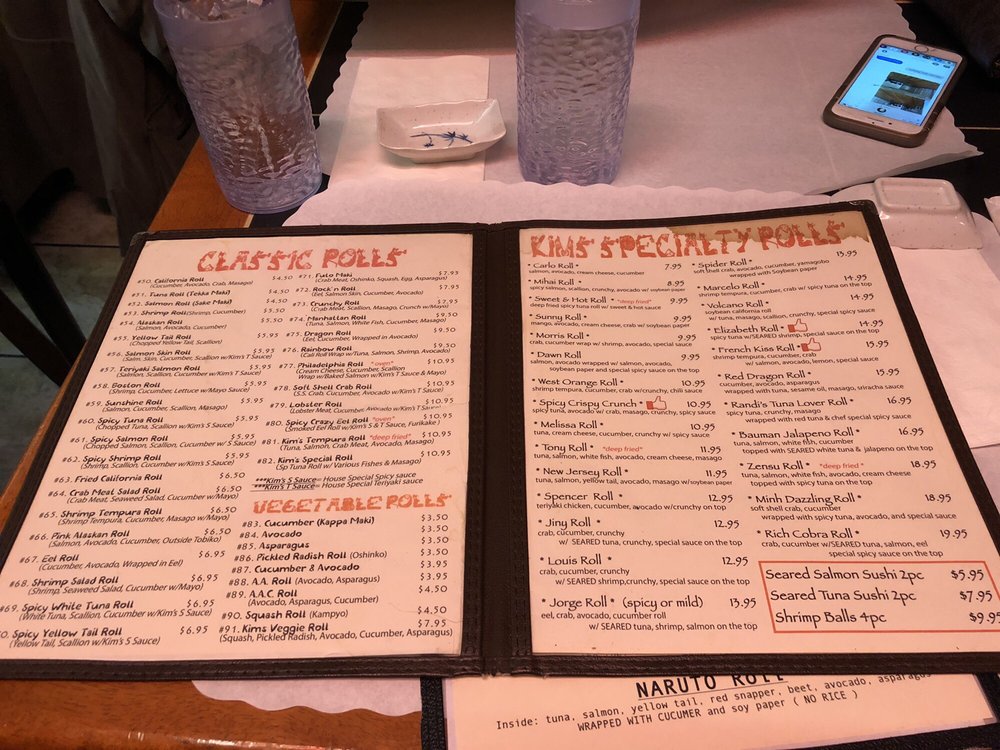 CLASSIC ROLLS
#50. California Roll $4.50
(Cucumber, Avocado, Crab, Masago)
#51. Tuna Roll (Tekka Maki) $4.50
#52. Salmon Roll (Sake Maki) $4.50
#53. Shrimp Roll(Shrimp, Cucumber) $5.50
#54. Alaskan Roll $5.50
(Salmon, Avocado, Cucumber)
#55. Yellow Tail Roll $5.95
(Chopped Yellow Tail, Scallion)
#56. Salmon Skin Roll $5.95
(Salm, Skin, Cucumber, Scallion w/Kim's T Sauce)
#57. Teriyaki Salmon Roll $5.95
(Salmon, Cucumber, Scallion w/Kim's T Sauce)
#58. Boston Roll $5.95
(Shrimp, Cucumber, Lettuce w/Mayo Sauce)
#59. Sunshine Roll $5.95
(Salmon, Cucumber, Scallion, Masago)
#60. Spicy Tuna Roll $5.95
(Chopped Tuna, Scallion w/Kim's S Sauce)
#61. Spicy Salmon Roll $5.95
(Chopped Salmon, Scallion, Cucumber w/ S Sauce)
#62. Spicy Shrimp Roll $5.95
(Shrimp, Scallion, Cucumber w/Kim's S Sauce)
#63. Fried California Roll $6.50
#64. Crab Meat Salad Roll $6.50
(Crab Meat, Seaweed Salad, Cucumber w/Mayo)
#65. Shrimp Tempura Roll $6.50
(Shrimp Tempura, Cucumber, Masago w/Mayo)
#66. Pink Alaskan Roll $6.50
(Salmon, Avocado, Cucumber, Outside Tobiko)
#67. Eel Roll $6.95
(Cucumber, Avocado, Wrapped in Eel)
#68. Shrimp Salad Roll $6.95
(Shrimp, Seaweed Salad, Cucumber w/Mayo)
#69. Spicy White Tuna Roll $6.95
(White Tuna, Scallion w/Kim's S Sauce)
0. Spicy Yellow Tail Roll $6.95
(Yellow Tail, Scallion w/Kim's S Sauce)
#71. Futo Maki $7.95
(Crab Meat, Oshinko, Squash, Egg, Asparagus)
#72. Rock'n Roll $7.95
(Eel, Salmon Skin, Cucumber, Avocado)
#73. Crunchy Roll $7.95
(Crab Meat, Scallion, Masago, Crunch w/Mayo)
#74. Manhattan Roll $9.50
(Tuna, Salmon, White Fish, Cucumber, Masago)
#75. Dragon Roll $9.50
(Eel, Cucumber, Wrapped in Avocado)
#76. Rainbow Roll $9.50
(Cali Roll Wrap w/Tuna, Salmon, Shrimp, Avocado)
#77. Philadelphia Roll "oven" $10.95
(Cream Cheese, Cucumber, Scallion
Wrap w/Baked Salmon w/Kim's T Sauce & Mayo)
#78. Soft Shell Crab Roll $10.95
(S.S. Crab, Cucumber, Avocado w/Kim's T Sauce)
#79. Lobster Roll $10.95
(Lobster Meat, Cucumber, Avocado w/Kim's T Sauce)
#80. Spicy Crazy Eel Roll "oven" $10.95
(Smoked Eel Roll w/Kim's S & T Sauce, Furikake.)
#81. Kim's Tempura Roll "deep fried" $10.95
(Tuna, Salmon, Crab Meat, Avocado, Masago)
#82. Kim's Special Roll $10.95
(Sp Tuna Roll w/ Various Fishes & Masago)
***Kim's S Sauce= House Special Spicy sauce
***Kim's T Sauce= House Special Teriyaki sauce
VEGETABLE ROLLS
#83. Cucumber (Kappa Maki) $3.50
#84. Avocado $3.50
#85. Asparagus $3.50
#86. Pickled Radish Roll (Oshinko) $3.50
#87. Cucumber & Avocado $3.95
#88. A.A. Roll (Avocado, Asparagus) $3.95
#89. A.A.C. Roll $4.50
(Avocado, Asparagus, Cucumber)
#90. Squash Roll (Kampyo) $4.50
#91. Kims Veggie Roll $7.95
(Squash, Pickled Radish, Avocado, Cucumber, Asparagus)
KIMS SPECIALTY ROLLS
* Carlo Roll * 7.95
salmon, avocado, cream cheese, cucumber
* Mihai Roll * 8.95
spicy salmon, scallion, crunchy, avocado w/ soybean paper
* Sweet & Hot Roll * *deep fried* 9.95
deep fried spicy tuna roll w/ sweet & hot sauce
* Sunny Roll * 9.95
mango, avocado, cream cheese, crab w/ soybean paper
* Morris Roll * 9.95
crab, cucumber wrap w/ shrimp, avocado, special sauce
* Dawn Roll 9.95
salmon, avocado wrapped w/ salmon, avocado,
soybean paper and special spicy sauce on the top
* West Orange Roll * 10.95
shrimp tempura, cucumber, crab w/ crunchy, chili sauce
* Spicy Crispy Crunch * 10.95
spicy tuna, avocado w/ crab, masago, crunchy, spicy sauce
* Melissa Roll * 10.95
tuna, cream cheese, cucumber, crunchy w/ spicy sauce
* Tony Roll * *deep fried* 11.95
tuna, salmon, white fish, avocado, cream cheese, masago
* New Jersey Roll * 11.95
tuna, salmon, yellow tail, avocado, masago w/soybean paper
* Spencer Roll * 12.95
teriyaki chicken, cucumber, avocado w/crunchy on top
* Jiny Roll * 12.95
crab, cucumber, crunchy
w/ SEARED tuna, crunchy, special sauce on the top
* Louis Roll * 12.95
crab, cucumber, crunchy
w/ SEARED shrimp,crunchy, special sauce on the top
* Jorge Roll * (spicy or mild) 13.95
eel, crab, avocado, cucumber roll
w/ SEARED tuna, shrimp, salmon on the top
* Spider Roll * 13.95
soft shell crab, avocado, cucumber, yamagobo
wrapped w/ Soybean paper
* Marcelo Roll * 14.95
shrimp tempura, cucumber, crab w/ tuna, spicy crab on the top
* Volcano Roll * 14.95
soybean california roll
w/ tuna, masago, scallion, crunchy, special spicy sauce
* Elizabeth Roll * 14.95
spicy tuna w/SEARED shrimp, special sauce on the top
* French Kiss Roll * 15.95
shrimp tempura, cucumber, crab
w/ salmon, avocado, lemon, special sauce
* Red Dragon Roll * 15.95
cucumber, avocado, asparagus
wrapped with tuna, sesame oil, masago, sriracha sauce
* Randi's Tuna Lover Roll * 16.95
spicy tuna, crunchy, masago
wrapped with red tuna & chef special spicy sauce
* Bauman Jalapeno Roll * 16.95
tuna, salmon, white fish, cucumber
topped with SEARED white tuna & jalapeno on the top
* Zensu Roll * *deep fried* 18.95
tuna, salmon, white fish, avocado, cream cheese
topped with spicy tuna on the top
* Minh Dazzling Roll * 18.95
soft shell crab, cucumber
wrapped with spicy tuna, avocado, and special sauce
* Rich Cobra Roll * 19.95
crab, cucumber w/SEARED tuna, salmon, eel
special spicy sauce on the top
Seared Salmon Sushi 2pc $5.95
Seared Tuna Sushi 2pc $7.95
Shrimp Balls 4pc $9.95
NARUTO ROLL
Inside: tuna, salmon, yellow tail, red snapper, beet, avocado, asparagus
WRAPPED WITH CUCUMER and soy paper ( NO RICE )